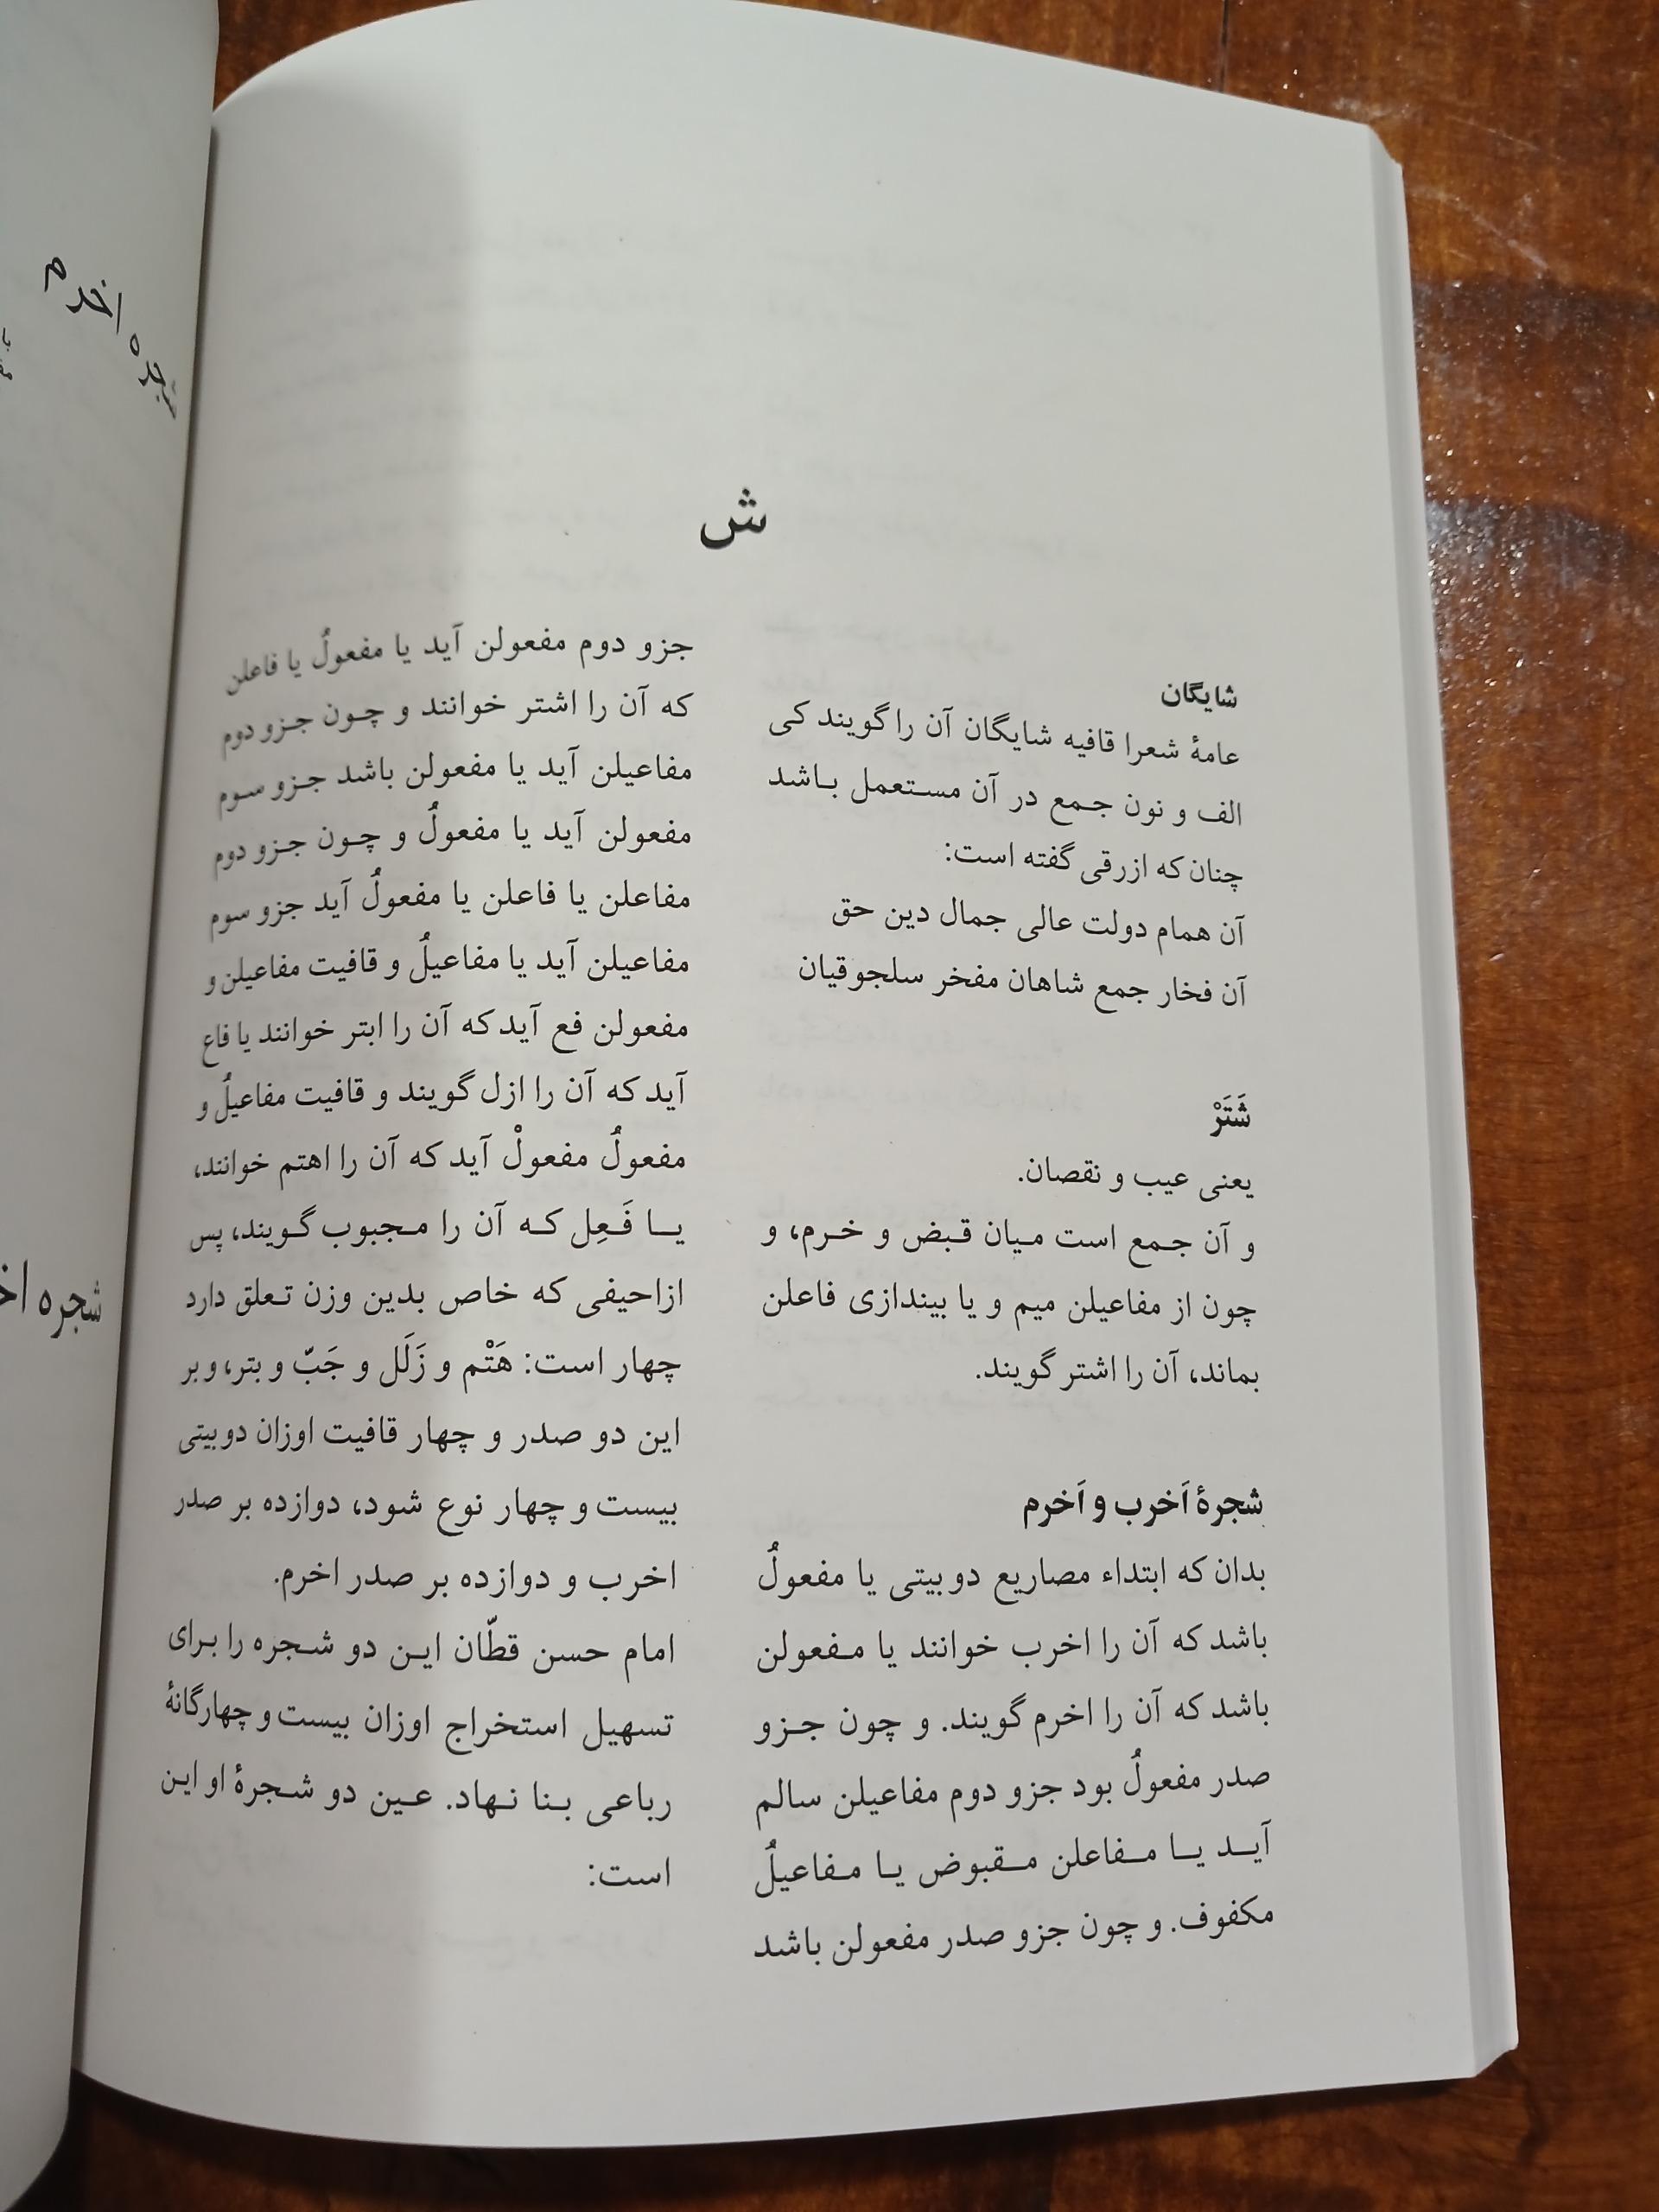 ش
شایگان
عامهٔ شعرا قافیه شایگان آن را گویند کی
الف و نون جمع در آن مستعمل باشد
چنان که ازرقی گفته است:
آن همام دولت عالی جمال دین حق
آن فخار جمع شاهان مفخر سلجوقیان
شَتَرْ
یعنی عیب و نقصان.
و آن جمع است میان قبض و خرم، و
چون از مفاعیلن میم و یا بیندازی فاعلن
بماند، آن را اشتر گویند.
شجرهٔ اَخرب و اَخرم
بدان که ابتداء مصاریع دوبیتی یا مفعولُ
باشد که آن را اخرب خوانند یا مفعولن
باشد که آن را اخرم گویند. و چون جزو
صدر مفعولُ بود جزو دوم مفاعیلن سالم
آید یا مفاعلن مقبوض یا مفاعیلُ
مکفوف. و چون جزو صدر مفعولن باشد
جزو دوم مفعولن آید یا مفعولُ یا فاعلن
که آن را اشتر خوانند و چون جزو دوم
مفاعیلن آید یا مفعولن باشد جزو سوم
مفعولن آید یا مفعولُ و چون جزو دوم
مفاعلن یا فاعلن یا مفعولُ آید جزو سوم
مفاعیلن آید یا مفاعیلُ و قافیت مفاعیلن و
مفعولن فع آید که آن را ابتر خوانند یا فاع
آید که آن را ازل گویند و قافیت مفاعیلُ و
مفعولُ مفعولْ آید که آن را اهتم خوانند،
یا فَعِل که آن را مجبوب گویند، پس
ازاحیفی که خاص بدین وزن تعلق دارد
چهار است: هَتْم و زَلَل و جَبّ و بتر، و بر
این دو صدر و چهار قافیت اوزان دوبیتی
بیست و چهار نوع شود، دوازده بر صدر
اخرب و دوازده بر صدر اخرم.
امام حسن قطّان این دو شجره را برای
تسهیل استخراج اوزان بیست و چهارگانهٔ
رباعی بنا نهاد. عین دو شجرهٔ او این
است:
شجره